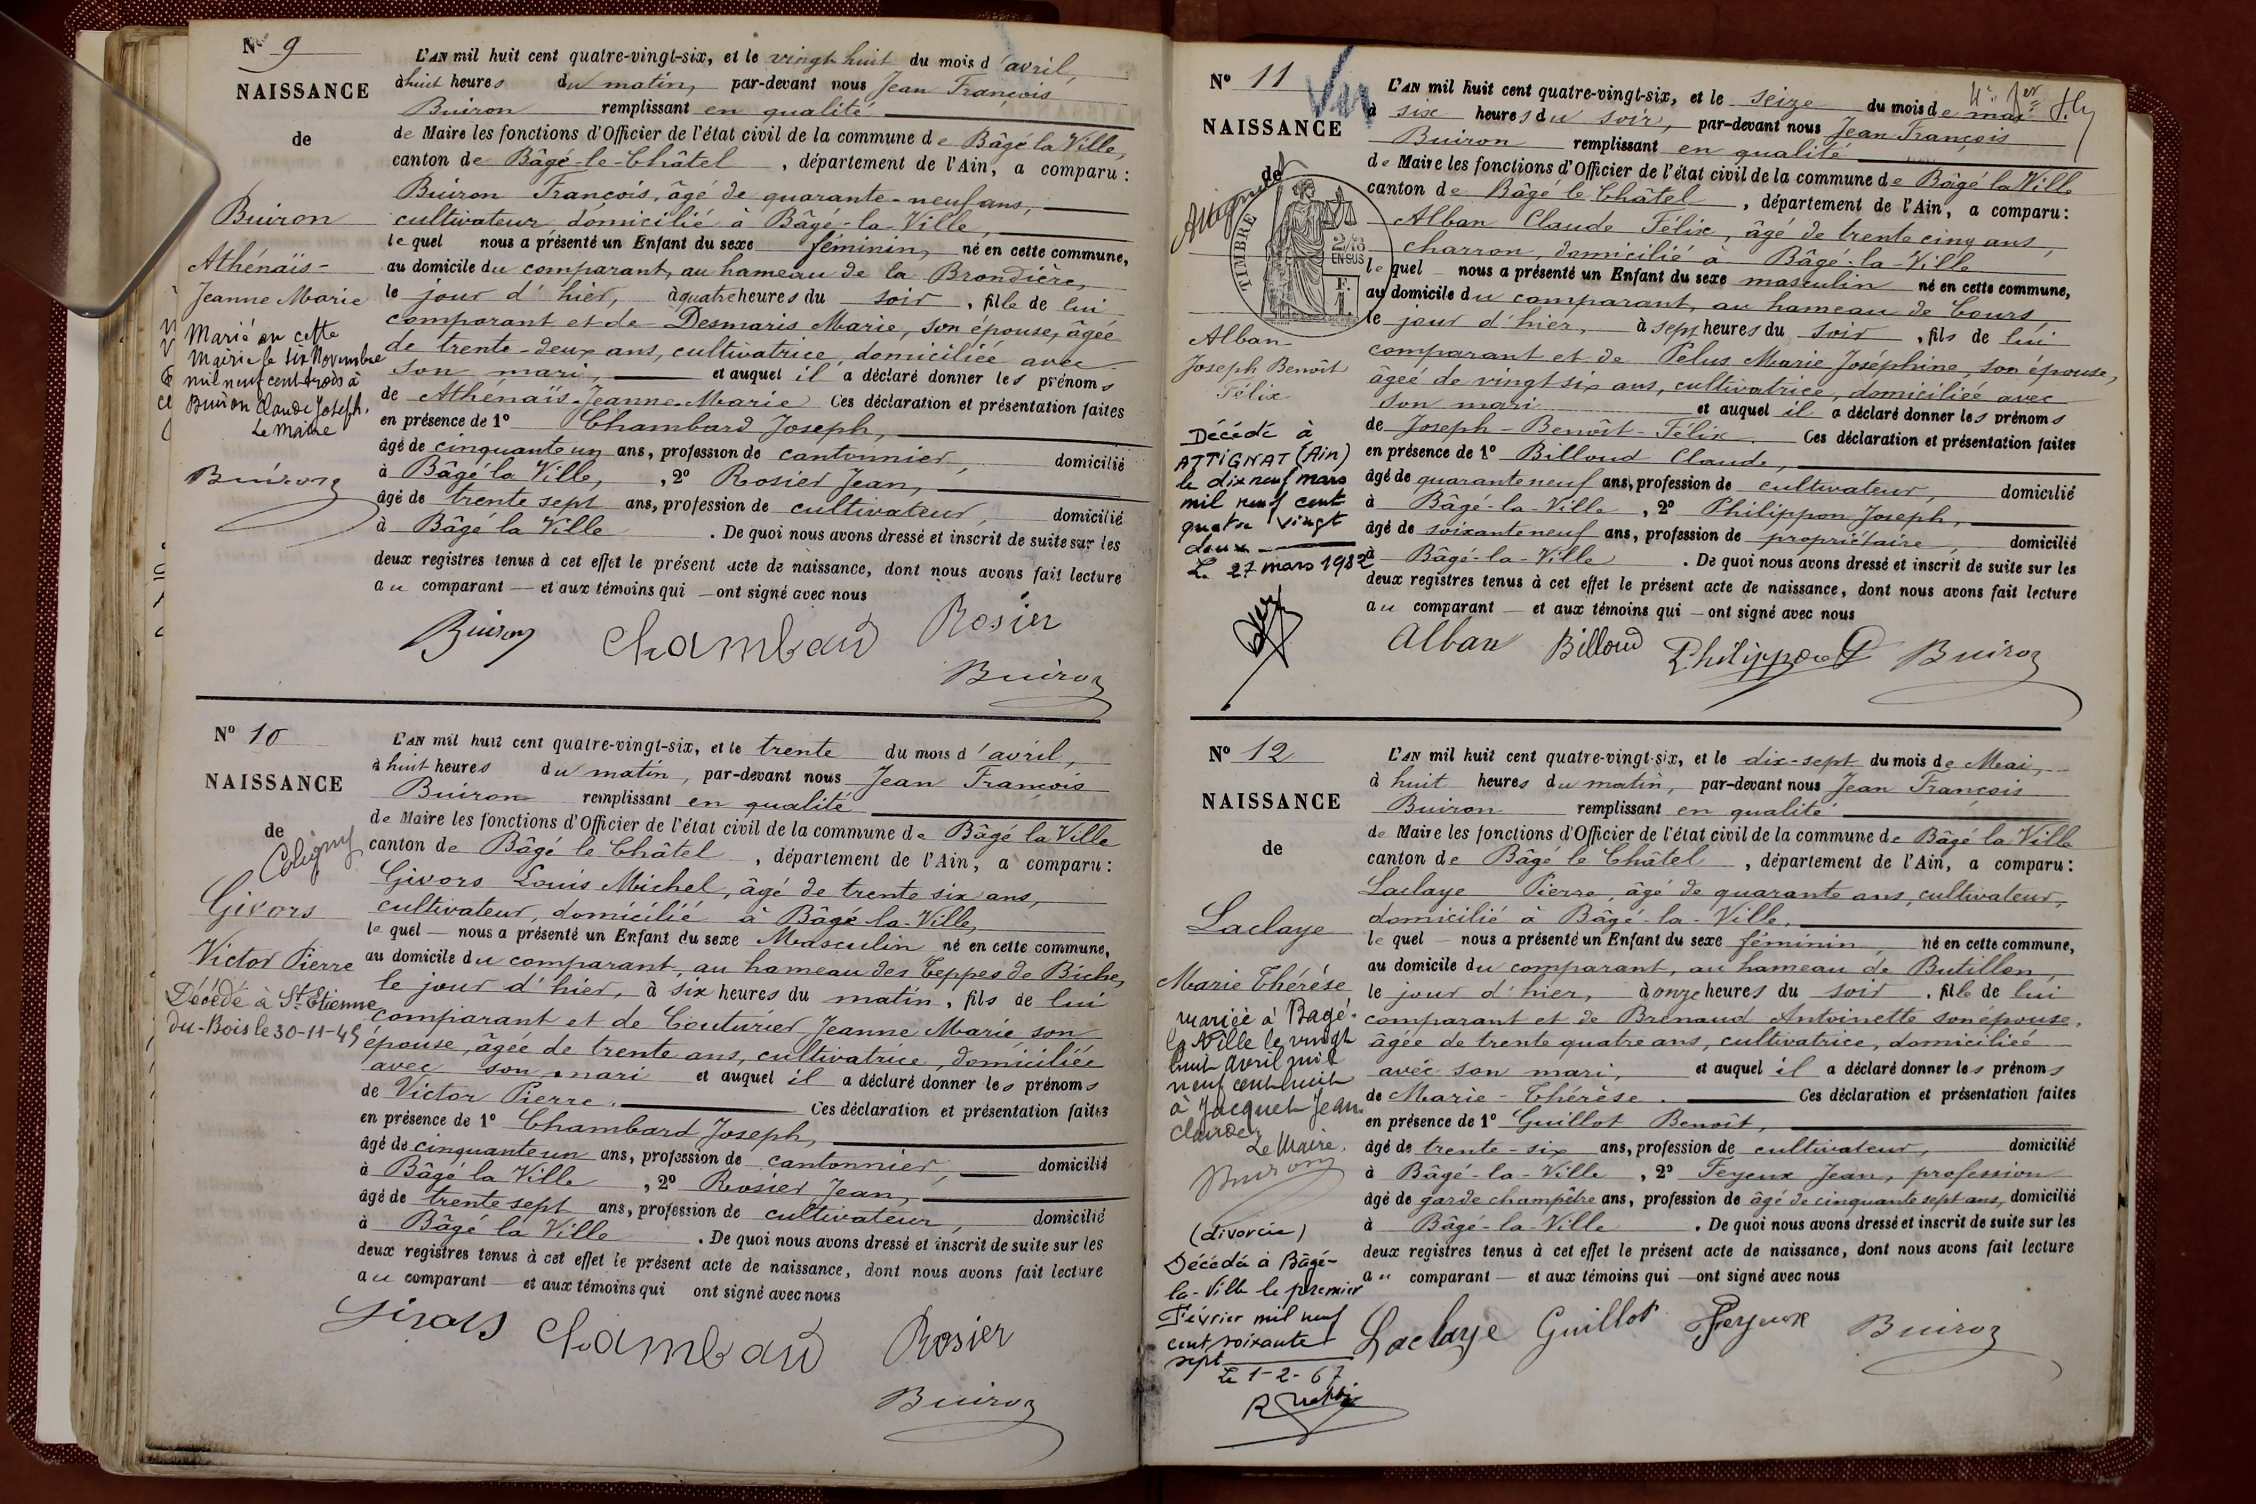 N° 9
NAISSANCE
de
Buiron
Athénaïs-
Jeanne Marie
Marié en cette
Mairie le six Novembre
mil neuf cent trois à
Buiron Claude Joseph.
Le Maire
Buiron
L'AN mil huit cent quatre-vingt-six, et le vingt huit du mois d'avril,
à huit heures du matin, par-devant nous Jean François
Buiron remplissant en qualité
de Maire les fonctions d'Officier de l'état civil de la commune de Bâgé la Ville,
canton de Bâgé-le-Châtel, département de l'Ain, a comparu:
Buiron François, âgé de quarante-neuf ans,
cultivateur domicilié à Bâgé-la-Ville,
lequel nous a présenté un Enfant du sexe féminin, né en cette commune,
au domicile du comparant, au hameau de la Brondière,
le jour d'hier, à quatre heures du soir, fille de lui
comparant et de Desmaris Marie, son épouse, âgée
de trente-deux ans, cultivatrice, domiciliée avec
son mari, et auquel il a déclaré donner les prénoms
de Athénaïs-Jeanne-Marie Ces déclaration et présentation faites
en présence de 1° Chambard Joseph,
âgé de cinquante un ans, profession de cantonnier, domicilié
à Bâgé la Ville, 2° Rosier Jean,
âgé de trente sept ans, profession de cultivateur, domicilié
à Bâgé la Ville. De quoi nous avons dressé et inscrit de suite sur les
deux registres tenus à cet effet le présent acte de naissance, dont nous avons fait lecture
au comparant — et aux témoins qui — ont signé avec nous
Buiron Chambard Rosier
Buiron
N° 10
NAISSANCE
de
Coligny
Givors
Victor Pierre
Décédé à St Etienne
du-Bois le 30-11-45
L'AN mil huit cent quatre-vingt-six, et le trente du mois d'avril,
à huit heures du matin, par-devant nous Jean François
Buiron remplissant en qualité
de Maire les fonctions d'Officier de l'état civil de la commune de Bâgé la Ville
canton de Bâgé le Châtel, département de l'Ain, a comparu:
Givors Louis Michel, âgé de trente six ans,
cultivateur, domicilié à Bâgé-la-Ville,
lequel — nous a présenté un Enfant du sexe Masculin né en cette commune,
au domicile du comparant, au hameau des Teppes de Biche,
le jour d'hier, à six heures du matin, fils de lui
comparant et de Couturier Jeanne Marie son
épouse, âgée de trente ans, cultivatrice, domiciliée
avec son mari et auquel il a déclaré donner les prénoms
de Victor Pierre. Ces déclaration et présentation faites
en présence de 1° Chambard Joseph,
âgé de cinquante un ans, profession de cantonnier, domicilié
à Bâgé la Ville, 2° Rosier Jean,
âgé de trente sept ans, profession de cultivateur, domicilié
à Bâgé la Ville. De quoi nous avons dressé et inscrit de suite sur les
deux registres tenus à cet effet le présent acte de naissance, dont nous avons fait lecture
au comparant — et aux témoins qui ont signé avec nous
Givors Chambard Rosier
Buiron
N° 11
NAISSANCE
de
Attignat
TIMBRE
2/10
EN SUS
Alban-
Joseph Benoît
Félix
Décédé à
ATTIGNAT (Ain)
le dix neuf mars
mil neuf cent
quatre vingt
deux
Le 27 mars 1982
L'AN mil huit cent quatre-vingt-six, et le seize du mois de mai
à six heures du soir, par-devant nous Jean François
Buiron remplissant en qualité
de Maire les fonctions d'Officier de l'état civil de la commune de Bâgé la Ville
canton de Bâgé le Châtel, département de l'Ain, a comparu:
Alban Claude Félix, âgé de trente cinq ans,
charron, domicilié à Bâgé-la-Ville
lequel — nous a présenté un Enfant du sexe masculin né en cette commune,
au domicile du comparant, au hameau de Cours,
le jour d'hier, à sept heures du soir, fils de lui
comparant et de Pelus Marie Joséphine, son épouse,
âgée de vingt six ans, cultivatrice, domiciliée avec
son mari et auquel il a déclaré donner les prénoms
de Joseph-Benoît-Félix. Ces déclaration et présentation faites
en présence de 1° Billoud Claude,
âgé de quarante neuf ans, profession de cultivateur, domicilié
à Bâgé-la-Ville, 2° Philippon Joseph,
âgé de soixante neuf ans, profession de propriétaire, domicilié
à Bâgé-la-Ville. De quoi nous avons dressé et inscrit de suite sur les
deux registres tenus à cet effet le présent acte de naissance, dont nous avons fait lecture
au comparant — et aux témoins qui — ont signé avec nous
Alban Billoud Philippon Buiron
N° 12
NAISSANCE
de
Laclaye
Marie Thérèse
Mariée à Bagé-
la Ville le vingt
huit avril mil
neuf cent huit
à Jacquet Jean
Claude
Le Maire.
Buiron
(divorcée)
Décédée à Bâgé-
la-Ville le premier
Février mil neuf
cent soixante
sept
Le 1-2-67
L'AN mil huit cent quatre-vingt-six, et le dix-sept du mois de Mai,
à huit heures du matin, par-devant nous Jean François
Buiron remplissant en qualité
de Maire les fonctions d'Officier de l'état civil de la commune de Bâgé la Ville
canton de Bâgé le Châtel, département de l'Ain, a comparu:
Laclaye Pierre, âgé de quarante ans, cultivateur,
domicilié à Bâgé-la-Ville,
lequel — nous a présenté un Enfant du sexe féminin, né en cette commune,
au domicile du comparant, au hameau de Butillon,
le jour d'hier, à onze heures du soir, fille de lui
comparant et de Brenaud Antoinette son épouse,
âgée de trente quatre ans, cultivatrice, domiciliée
avec son mari, et auquel il a déclaré donner les prénoms
de Marie-Thérèse. Ces déclaration et présentation faites
en présence de 1° Guillot Benoît,
âgé de trente-six ans, profession de cultivateur, domicilié
à Bâgé-la-Ville, 2° Feyeux Jean, profession
âgé de garde champêtre ans, profession de âgé de cinquante sept ans, domicilié
à Bâgé-la-Ville. De quoi nous avons dressé et inscrit de suite sur les
deux registres tenus à cet effet le présent acte de naissance, dont nous avons fait lecture
au comparant — et aux témoins qui — ont signé avec nous
Laclaye Guillot Feyeux Buiron